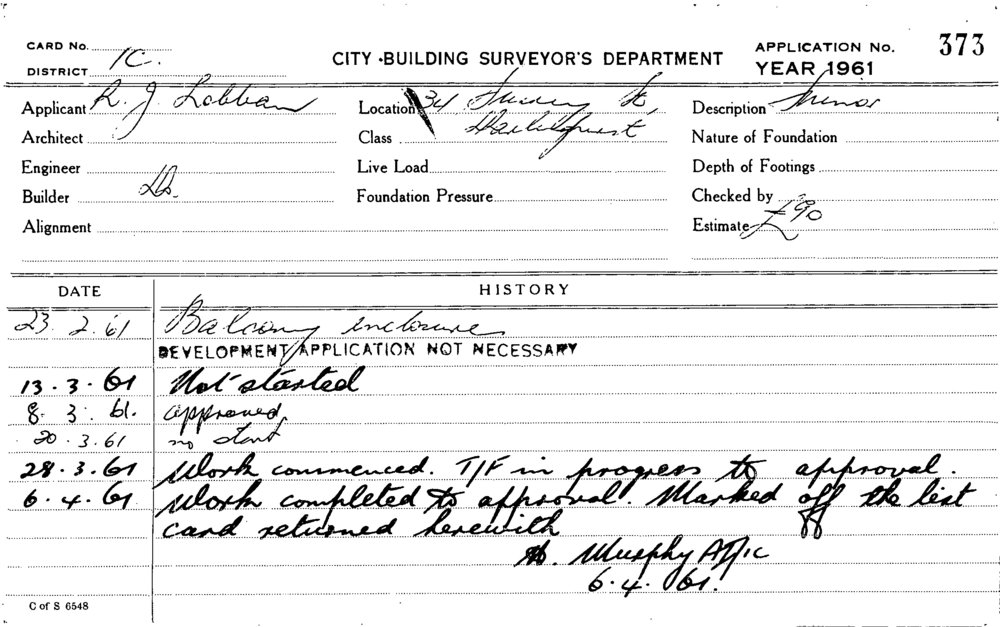 CARD No.
CITY · BUILDING SURVEYOR'S DEPARTMENT
APPLICATION No. 373
DISTRICT 1C.
YEAR 1961
Applicant R. J. Lobban
Location 34 Surrey St,
Description Minor
Architect
Class Darlinghurst
Nature of Foundation
Engineer
Live Load
Depth of Footings
Builder Do.
Foundation Pressure
Checked by
Alignment
Estimate £90
DATE HISTORY
23. 2. 61 Balcony enclosure
DEVELOPMENT APPLICATION NOT NECESSARY
13. 3. 61 Not started
8. 3. 61. approved
20. 3. 61 no start
28. 3. 61 Work commenced. T/F in progress to approval.
6. 4. 61 Work completed to approval. Marked off the list
card returned herewith
Murphy
6. 4. 61.
C of S 6548